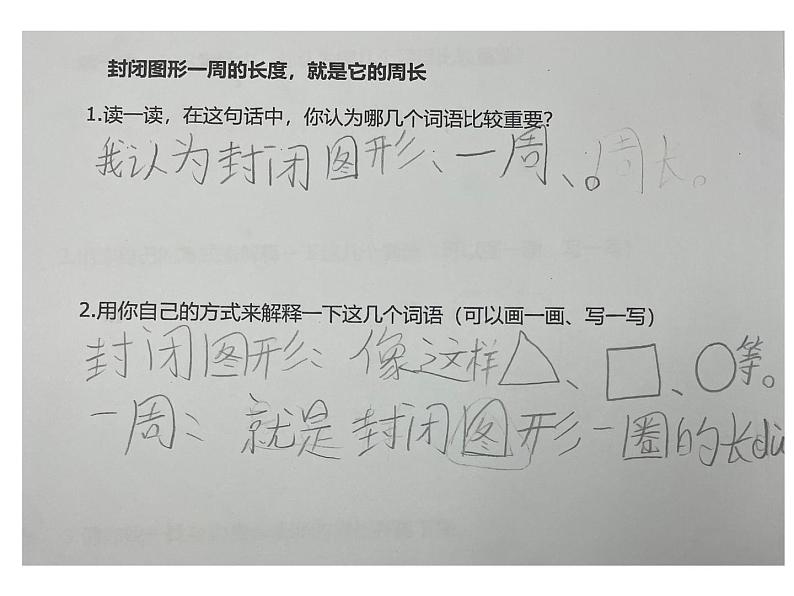 封闭图形一周的长度，就是它的周长
1.读一读，在这句话中，你认为哪几个词语比较重要？
我认为封闭图形、一周、。周长。
2.用你自己的方式来解释一下这几个词语（可以画一画、写一写）
封闭图形：像这样△、□、○等。
一周：就是封闭图形一圈的长dù